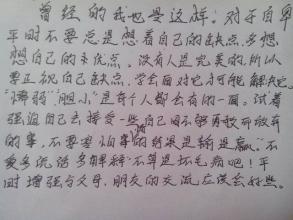 曾经的我也是这样。对于自卑
平时不要总是想着自己的缺点,多想
想自己的优点。没有人是完美的,所以
要正视自己缺点,学会面对它才可能解决它。
“懦弱”“胆小”是每个人都会有的一面。试着
强迫自己去接受一些自己因不够勇敢而放弃
的事,不要害怕事情的结果是输是赢。不
爱多说话多解释不算是坏毛病吧!平
时增强与父母、朋友的交流应该会好些。